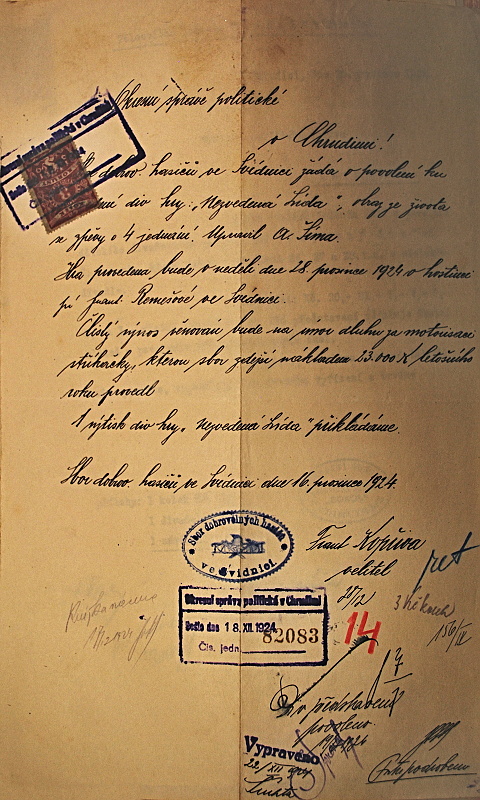 Okresní správě politické
v Chrudimi!
dobrov. hasičů ve Svídnici žádá o povolení ku
div hry: „Nezvedená Lída", obraz ze života
se zpěvy o 4 jednání. Upravil A. Šíma.
Hra provedena bude v neděli dne 28. prosince 1924 v hostinci
pí Frant. Remešové ve Svídnici.
Čistý výnos věnován bude na umoř dluhu za motorisaci
stříkačky, kterou sbor zdejší nákladem 23.000 K letošního
roku provedl
1 výtisk div hry „Nezvedená Lída" přikládáme.
Sbor dobrov. hasičů ve Svídnici dne 16. prosince 1924.
Sbor dobrovolných hasičů
ve Svídnici
Frant. Kopřiva
velitel
Okresní správa politická v Chrudimi
Došlo dne 18. XII. 1924
Čís. jedn. 82083
14
představení
povoleno
Vypraveno
22/XII 1924